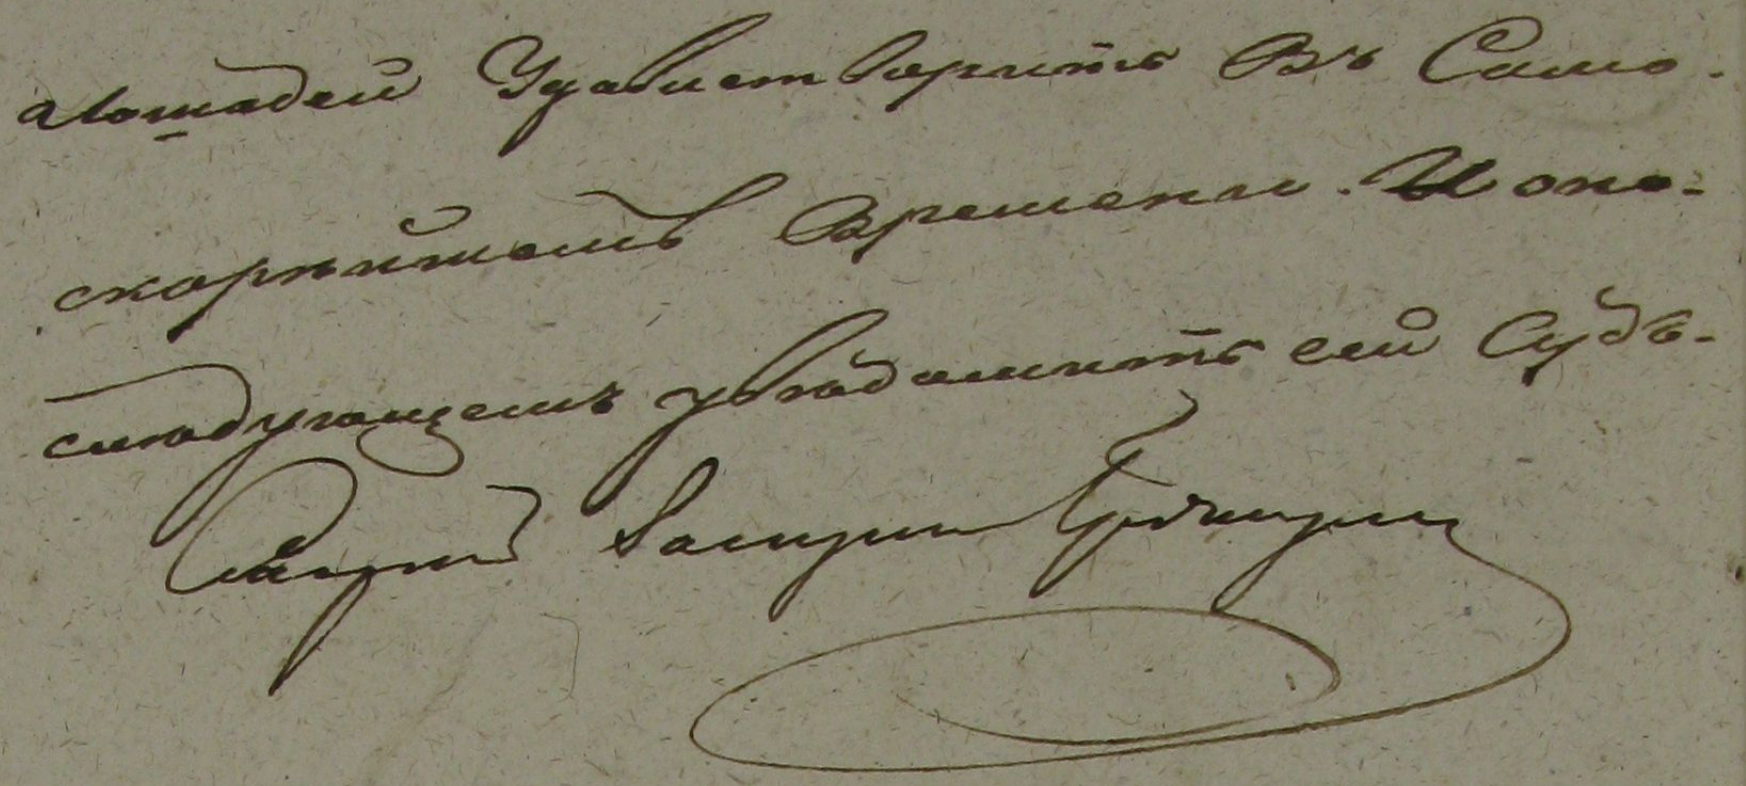 лошадей Удовлетворить Въ Само-
скорѣйшемъ Времени. И опо-
слѣдующемъ увѣдомить сей Судъ.